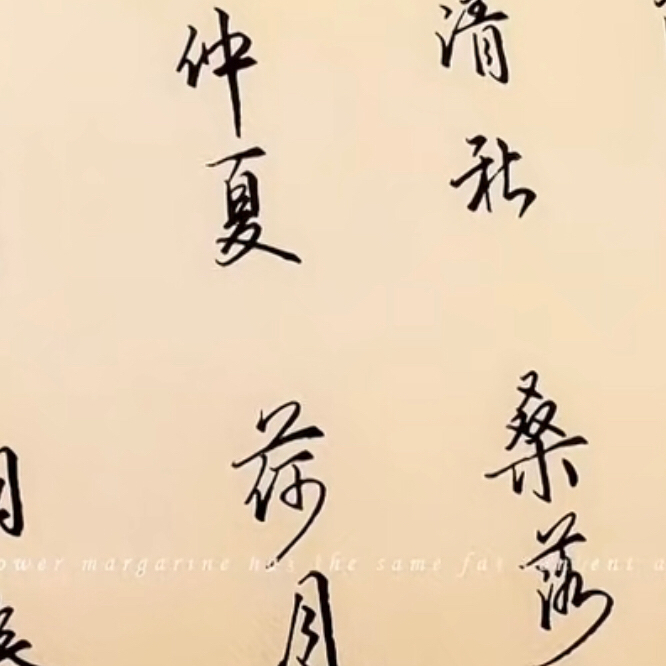 清秋
桑落
仲夏
荷月
ower margarine has the same fat content a